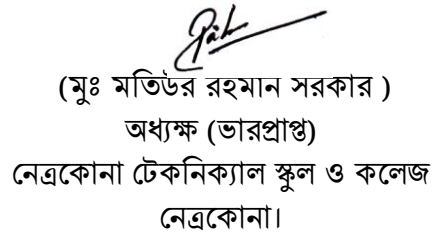 (মুঃ মতিউর রহমান সরকার )
অধ্যক্ষ (ভারপ্রাপ্ত)
নেত্রকোনা টেকনিক্যাল স্কুল ও কলেজ
নেত্রকোনা।